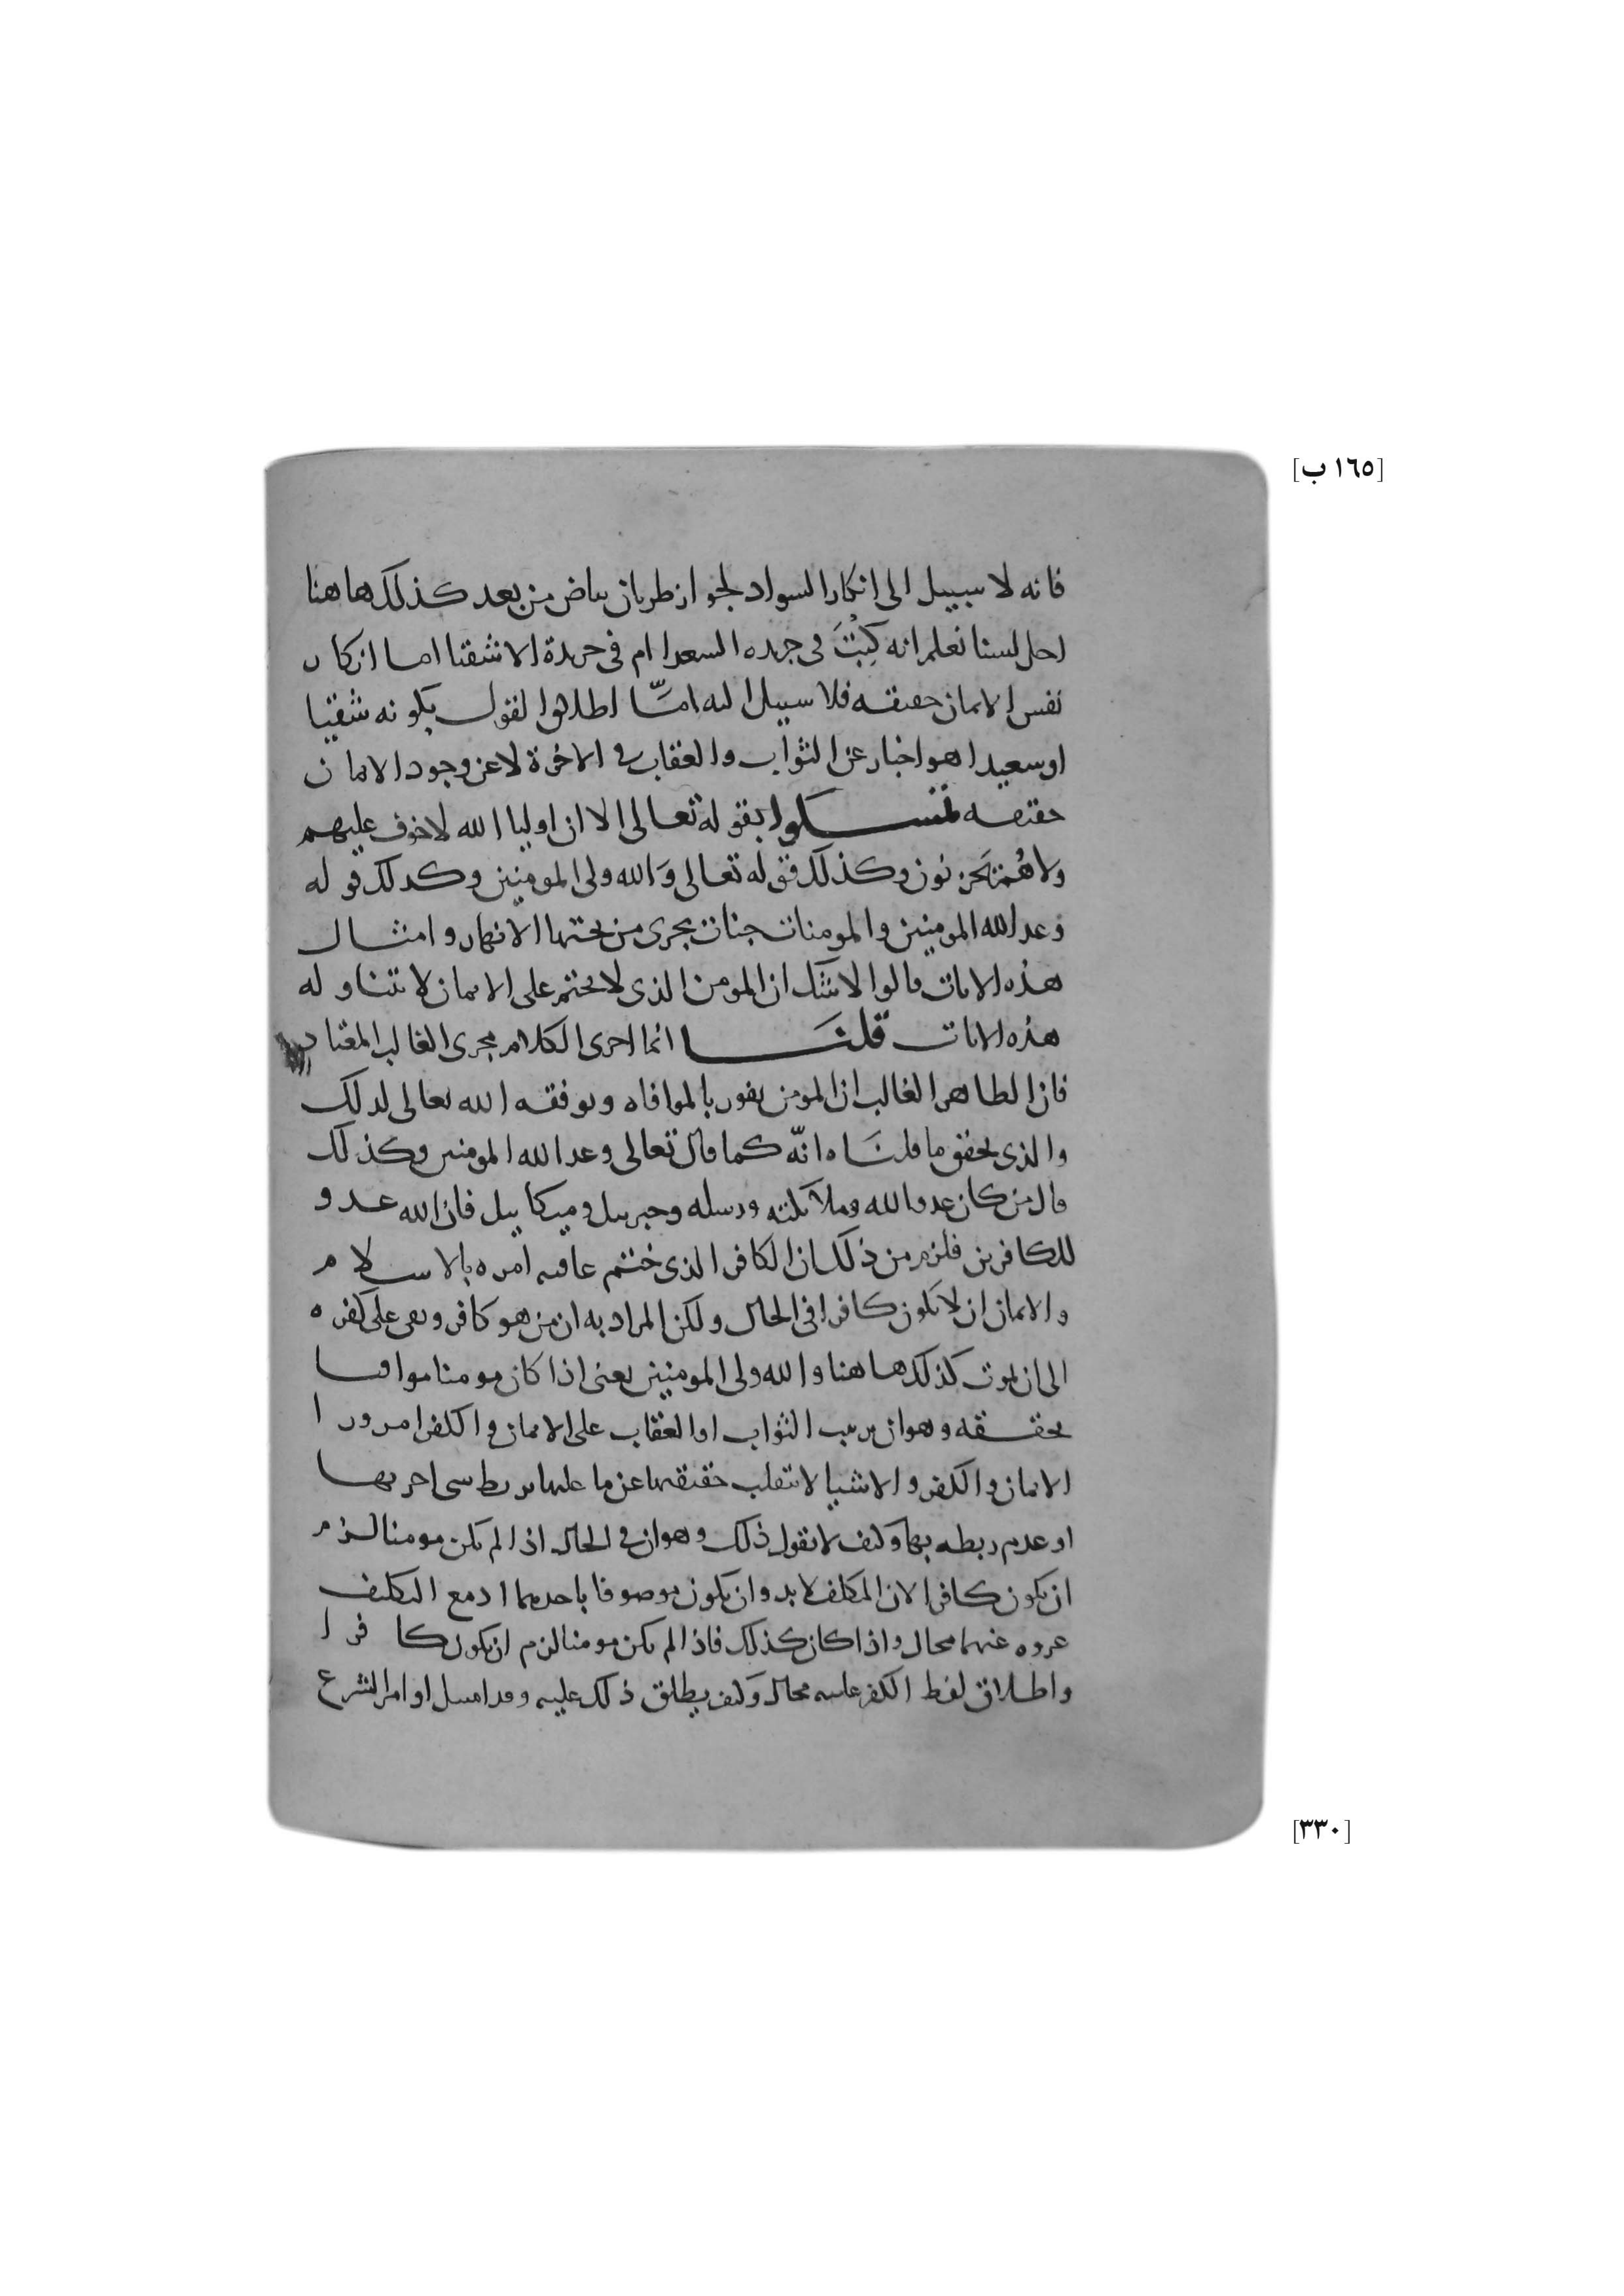 [١٦٥ ب]
فانه لا سبيل الى انكار السواد لجواز طريان بياض من بعد كذلك هاهنا
اجل لسنا نعلم انه كُتِبَ في جريده السعدا ام في جريدة الاشقيا اما ان كان
نفس الايمان حقيقه فلا سبيل اليه امّا اطلاق القول بكونه شقيا
او سعيدا هو اخبار عن الثواب والعقاب في الاخرة لا عن وجود الايمان
حقيقه تمسكوا بقوله تعالى الا ان اوليا الله لا خوف عليهم
ولا هُم يَحزنون وكذلك قوله تعالى وَالله ولى المومنين وكذلك قوله
وعد الله المومنين والمومنات جنات تجرى من تحتها الانهار وامثال
هذه الايات قالوا لا شك ان المومن الذى لا يختم على الايمان لا تتناوله
هذه الايات قلنَا انما اجرى الكلام مجرى الغالب المعتاد
فان الظاهر الغالب ان المومن يفوز بالموافاه ويوفقه الله تعالى لذلك
والذى يحقق ما قلنَاه انّه كما قال تعالى وعد الله المومنين وكذلك
قال من كان عدوا لله وملائكته ورسله وجبريل وميكاييل فان الله عدو
للكافرين فلزم من ذلك ان الكافر الذى ختم عاقبه امره بالاسلام
والايمان ان لا يكون كافرا في الحال ولكن المراد به ان من هو كافر وبقى على كفره
الى ان يموت كذلك هاهنا والله ولى المومنين يعنى اذا كان مومنا موافيا
يحققه وهو ان ترتيب الثواب او العقاب على الايمان والكفر امر ورا
الايمان والكفر والاشيا لا تنقلب حقيقتها عن ما عليها بربط شى اخر بها
او عدم ربطه بها وكيف لا نقول ذلك وهو ان في الحال اذا لم يكن مومنا لزم
ان يكون كافرا لان المكلف لا بد وان يكون موصوفا باحديهما اذ مع التكليف
عروه عنهما محال واذا كان كذلك فاذا لم يكن مومنا لزم ان يكون كافرا
واطلاق لفظ الكفر عليه محال وكيف يطلق ذلك عليه وقد امتثل اوامر الشرع
[٣٣٠]